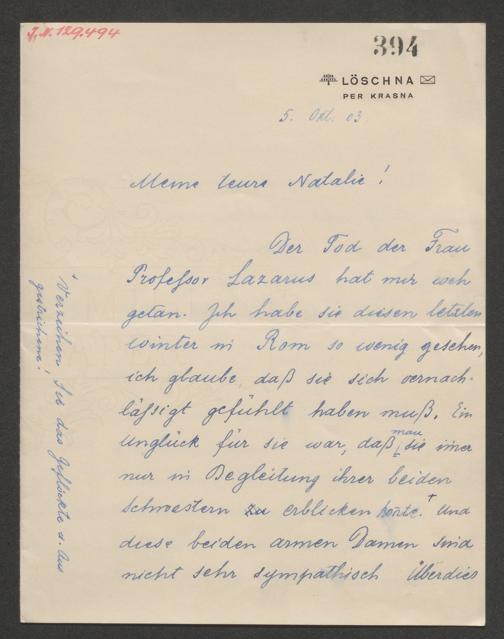 J.N. 129.494
394
LÖSCHNA
PER KRASNA
5. Okt. 03
Meine teure Natalie!
Der Tod der Frau
Professor Lazarus hat mir weh
getan. Ich habe sie diesen letzten
Winter in Rom so wenig gesehen,
ich glaube, daß sie sich vernach-
läßigt gefühlt haben muß. Ein
Unglück für sie war, daß man sie imer
nur in Begleitung ihrer beiden
Schwestern zu erblicken konte. + Und
diese beiden armen Damen sind
nicht sehr sympathisch Überdies
+ Verzeihen Sie das Geflickte u. Aus
gestrichene!